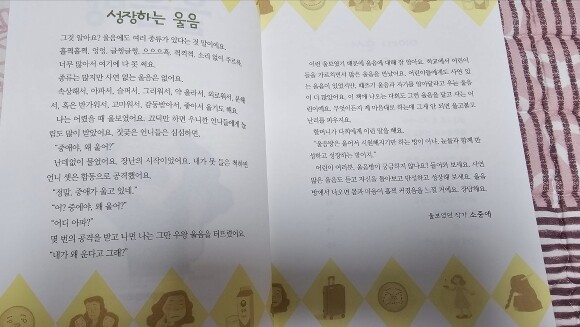 성장하는 울음
그것 알아요? 울음에도 여러 종류가 있다는 것 말이에요.
훌쩍훌쩍, 엉엉, 글썽글썽, 으으으흑, 꺼꺼꺽, 소리 없이 주르륵.
너무 많아서 여기에 다 못 써요.
종류는 많지만 사연 없는 울음은 없어요.
속상해서, 아파서, 슬퍼서, 그리워서, 약 올라서, 외로워서, 분해
서, 혹은 반가워서, 고마워서, 감동받아서, 좋아서 울기도 해요.
나는 어렸을 때 울보였어요. 끄떡만 하면 우니깐 언니들에게 놀
림도 많이 받았어요. 짓궂은 언니들은 심심하면,
"중애야, 왜 울어?"
난데없이 물었어요. 장난의 시작이었어요. 내가 못 들은 척하면
언니 셋은 합동으로 공격했어요.
"정말, 중애가 울고 있네."
"어? 중애야, 왜 울어?"
"어디 아파?"
몇 번의 공격을 받고 나면 나는 그만 우왕 울음을 터뜨렸어요.
"내가 왜 운다고 그래?"
어린 울보였기 때문에 울음에 대해 잘 알아요. 학교에서 어린이
들을 가르치면서 많은 울음을 만났어요. 어린이들에게도 사연 있
는 울음이 있었지만, 떼쓰기 울음과 자기를 알아달라고 우는 울음
이 더 많았어요. 이 책에 나오는 다희도 그런 울음을 달고 사는 어
린이예요. 무엇이든지 제 마음대로 하는데 그게 안 되면 울고불고
난리를 피우지요.
할머니가 다희에게 이런 말을 해요.
"울음방은 울어서 시원해지기만 하는 방이 아냐. 눈물과 함께 반
성하고 성장하는 방이지."
어린이 여러분, 울음방이 궁금하지 않나요? 들어와 보세요. 사연
많은 울음도 듣고 자신을 돌아보고 반성하고 성장해 보세요. 울음
방에서 나오면 몸과 마음이 훌쩍 커졌음을 느낄 거예요. 장담해요.
울보였던 작가 소중애